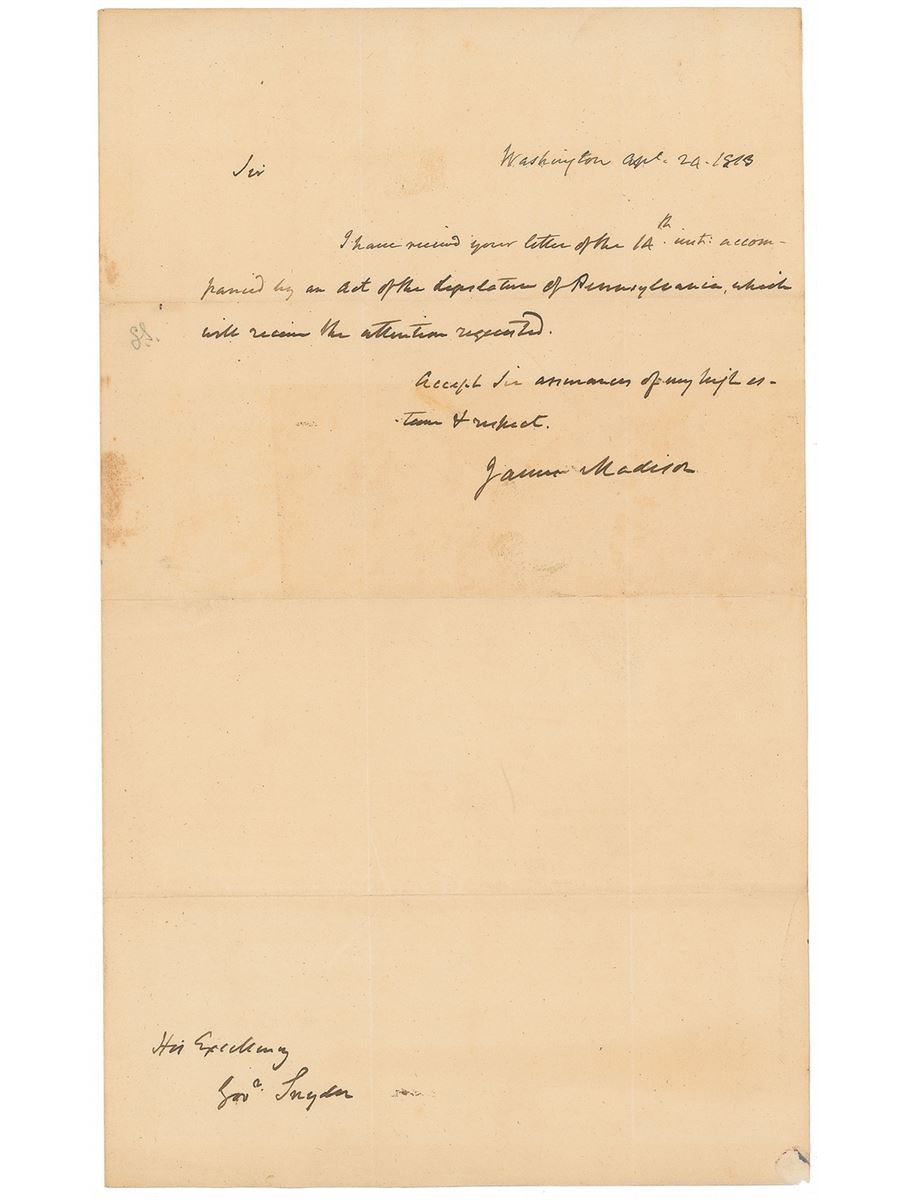 Washington Apl. 24. 1813
Sir
I have received your letter of the 14th. inst: accom-
panied by an Act of the Legislature of Pennsylvania, which
will receive the attention requested.
Accept Sir assurances of my high es-
teem & respect.
James Madison
His Excellency
Govr. Snyder